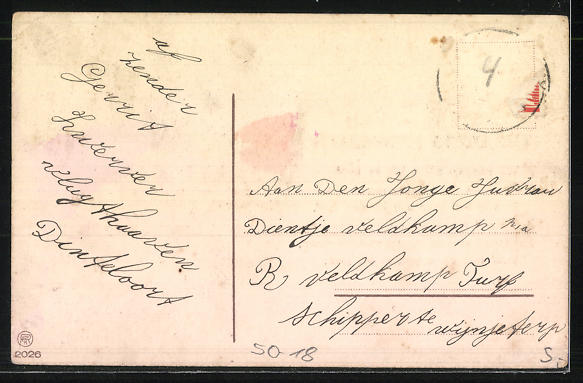 af
zender
Gerrit
Knerver
vlugthaaven
Dinteloort
Aan Den Jonge Jufvrau
Dientje veldkamp
R veldkamp Turf
schipper te wijnjeterp
4
2026
50 18